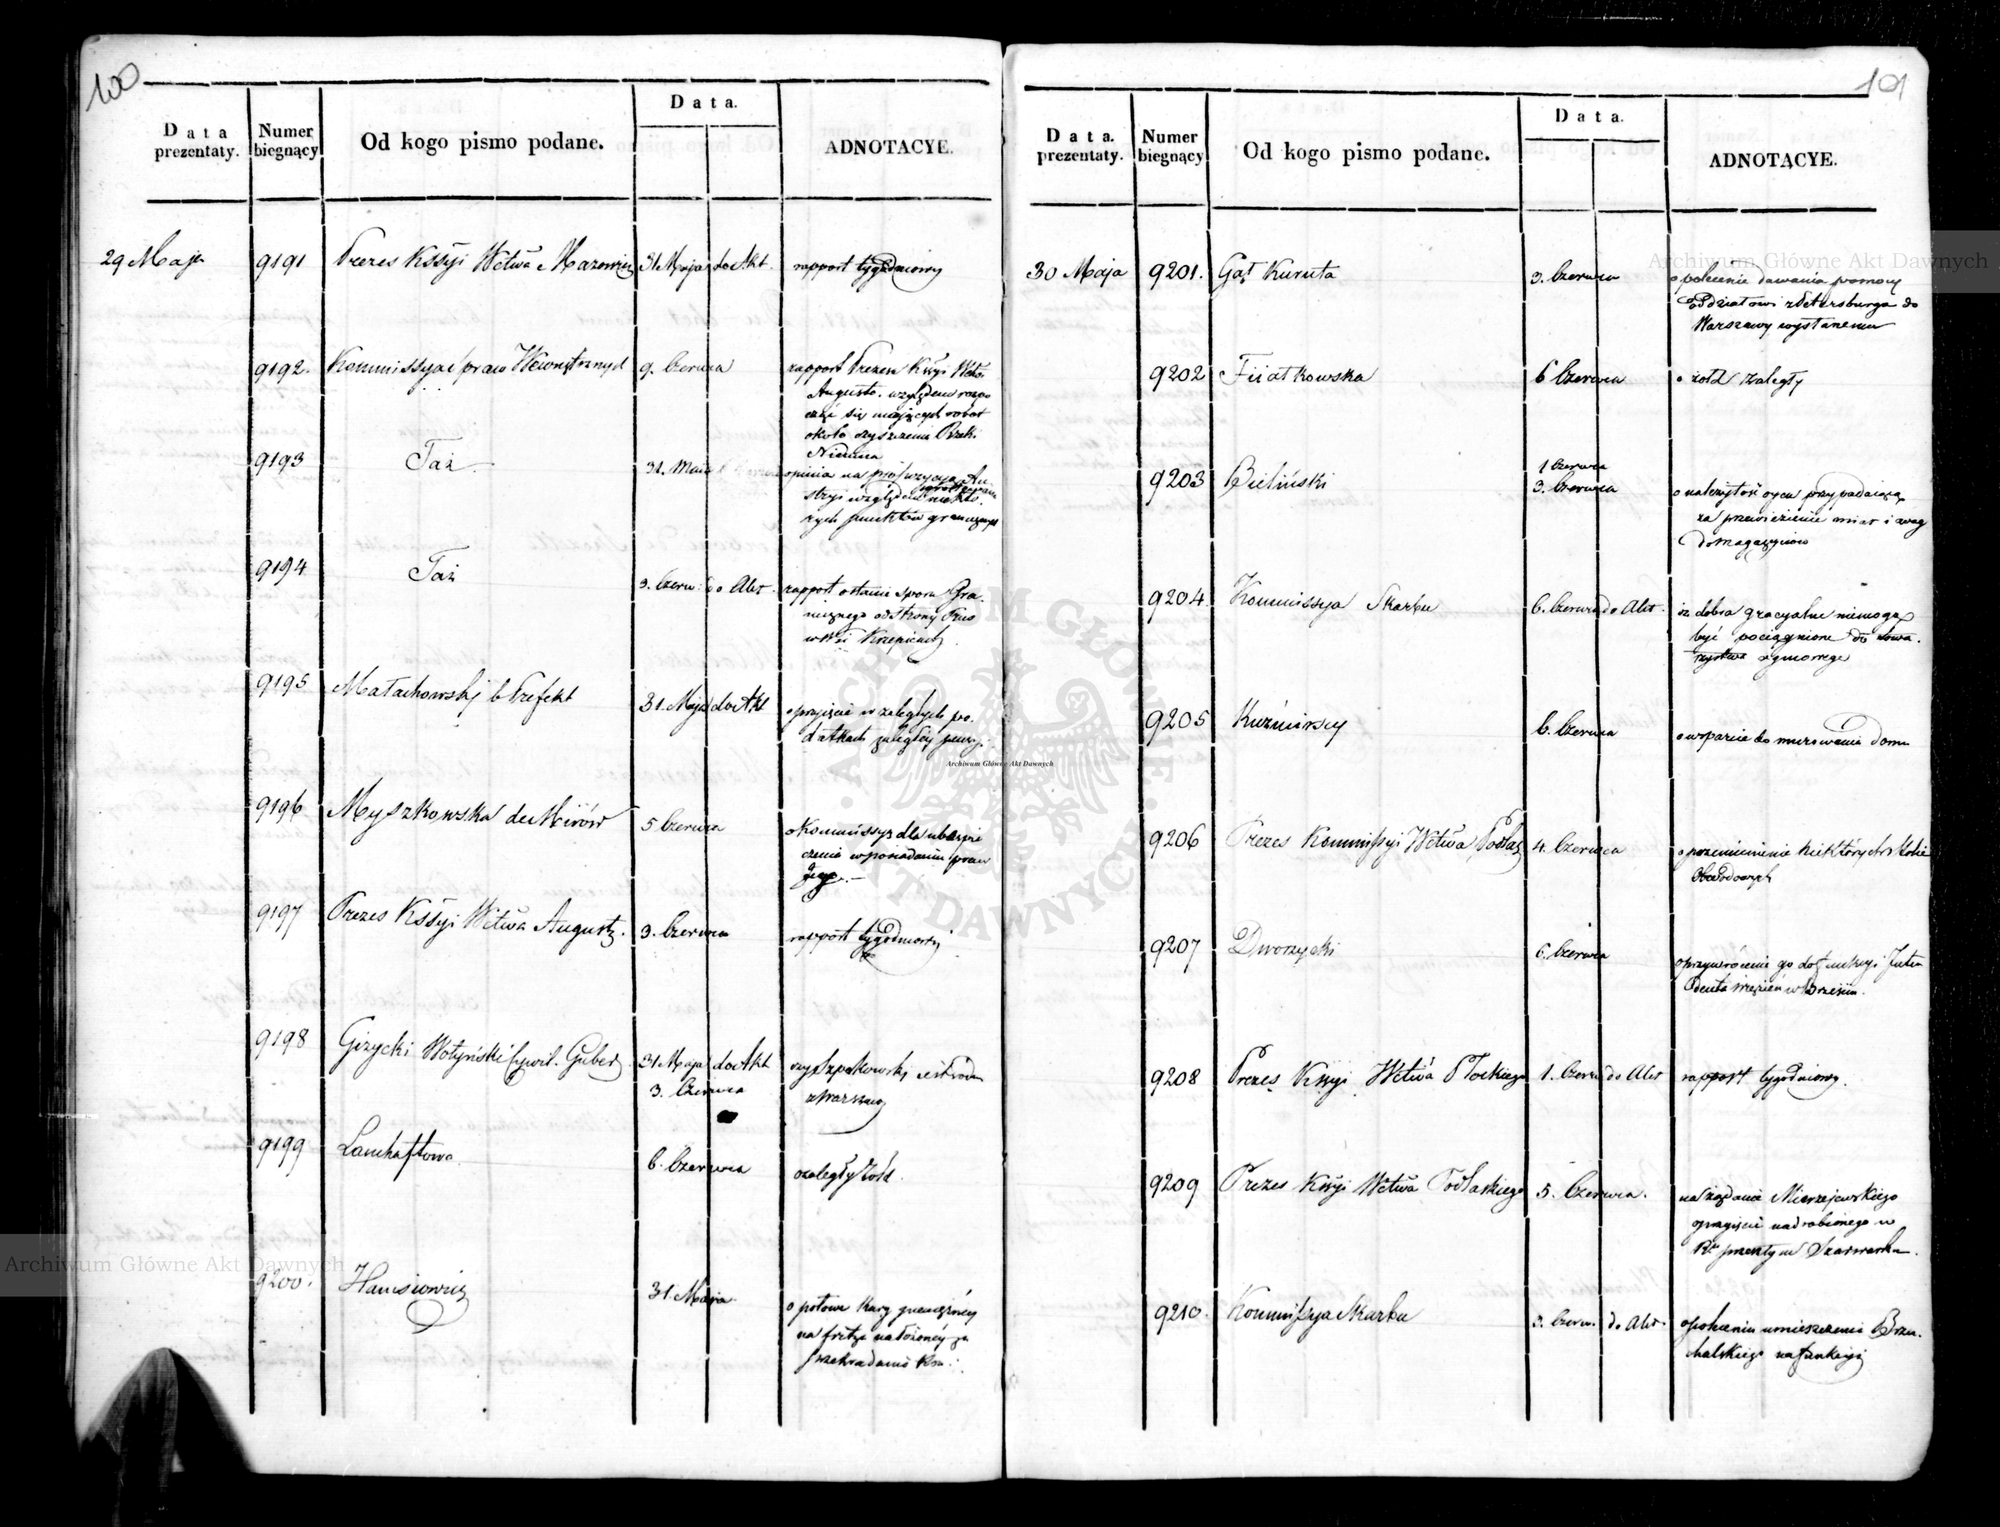 100
Data prezentaty.
Numer biegnący
Od kogo pismo podane.
Data.
ADNOTACYE.
29 Maja
9191
Prezes Kssyi Wctwa Mazowiec
31 Maja do Akt.
rapport tygodniowy
9192.
Kommissya Spraw Wewnętrznych
9. Czerwca
rapport Prezesa Kssyi Wctwa
Augusto. względem rozpo
cząć się mających robot
około czyszczenia Rzeki
Niemna
9193
Taż
31. Maia
opinia na
stryi względem
rych punktów granicznych
9194
Taż
3. Czerw. do Akt.
rapport o stanie sporu Gra
nicznego od strony Prus
w Wsi Krzepicach
9195
Małachowski b. Prefekt
31. Maja do Akt
o przyięcie w zaległych po.
datkach zaległey pensyi
9196
Myszkowska de Mirów
5 Czerwca
o Kommissyą dla ubezpie
czenia w posiadaniu praw
jego.
9197
Prezes Kssyi Wctwa Augusts.
3. Czerwca
rapport tygodniowy
9198
Giżycki Wołyński Cywil. Guber.
31 Maja do Akt
3. Czerwca
czy Szpakowski iest rodem
z Warszawy
9199
Lanchaftowa
6. Czerwca
o zaległy żołd.
9200.
Hanisiewicz
31. Maja
o połowę kary pieniężney
na frytza nałożoney za
przekradanie
101
Data. prezentaty.
Numer biegnący
Od kogo pismo podane.
Data.
ADNOTĄCYE.
30 Maja
9201.
Gał Kuruta
3. Czerwca
o polecenie dawania pomocy
Oddziałowi z Petersburga do
Warszawy wysłanemu
9202
Fiiałkowska
6 Czerwca
o żołd zaległy
9203
Bieliński
1 Czerwca
3. Czerwca
o należytość oycu przypadaiącą
za przewiezienie miar i wag
do magazynów
9204
Kommissya Skarbu
6. Czerwca do Akt.
iż dobra gracyalne niemogą
być pociągnione do towa.
rzystwa ogniowego
9205
Kuźnierscy
6. Czerwca
o wsparcie do murowania domu
9206
Prezes Kommissyi Wctwa Podlas
4. Czerwca
o przemienienie niektórych
Obwodowych
9207
Dworzycki
6. Czerwca
o przywrócenie go do funkcyi Inten
denta więzień w Brzesiu.
9208
Prezes Kssyi Wctwa Płockiego
1. Czerw. do Akt
rapport tygodniowy.
9209
Prezes Kssyi Wctwa Podlaskiego
5. Czerwca.
na żądanie Mierzejewskiego
o przyięcie nadrobionego w
Szarwarku.
9210.
Kommissya Skarbu
3. Czerw. do Akt.
o poleceniu umieszczenia Brzu.
chalskiego na funkcyi
Archiwum Główne Akt Dawnych
Archiwum Główne Akt Dawnych
Archiwum Główne Akt Dawnych
ARCHIWUM GŁÓWNE AKT DAWNYCH